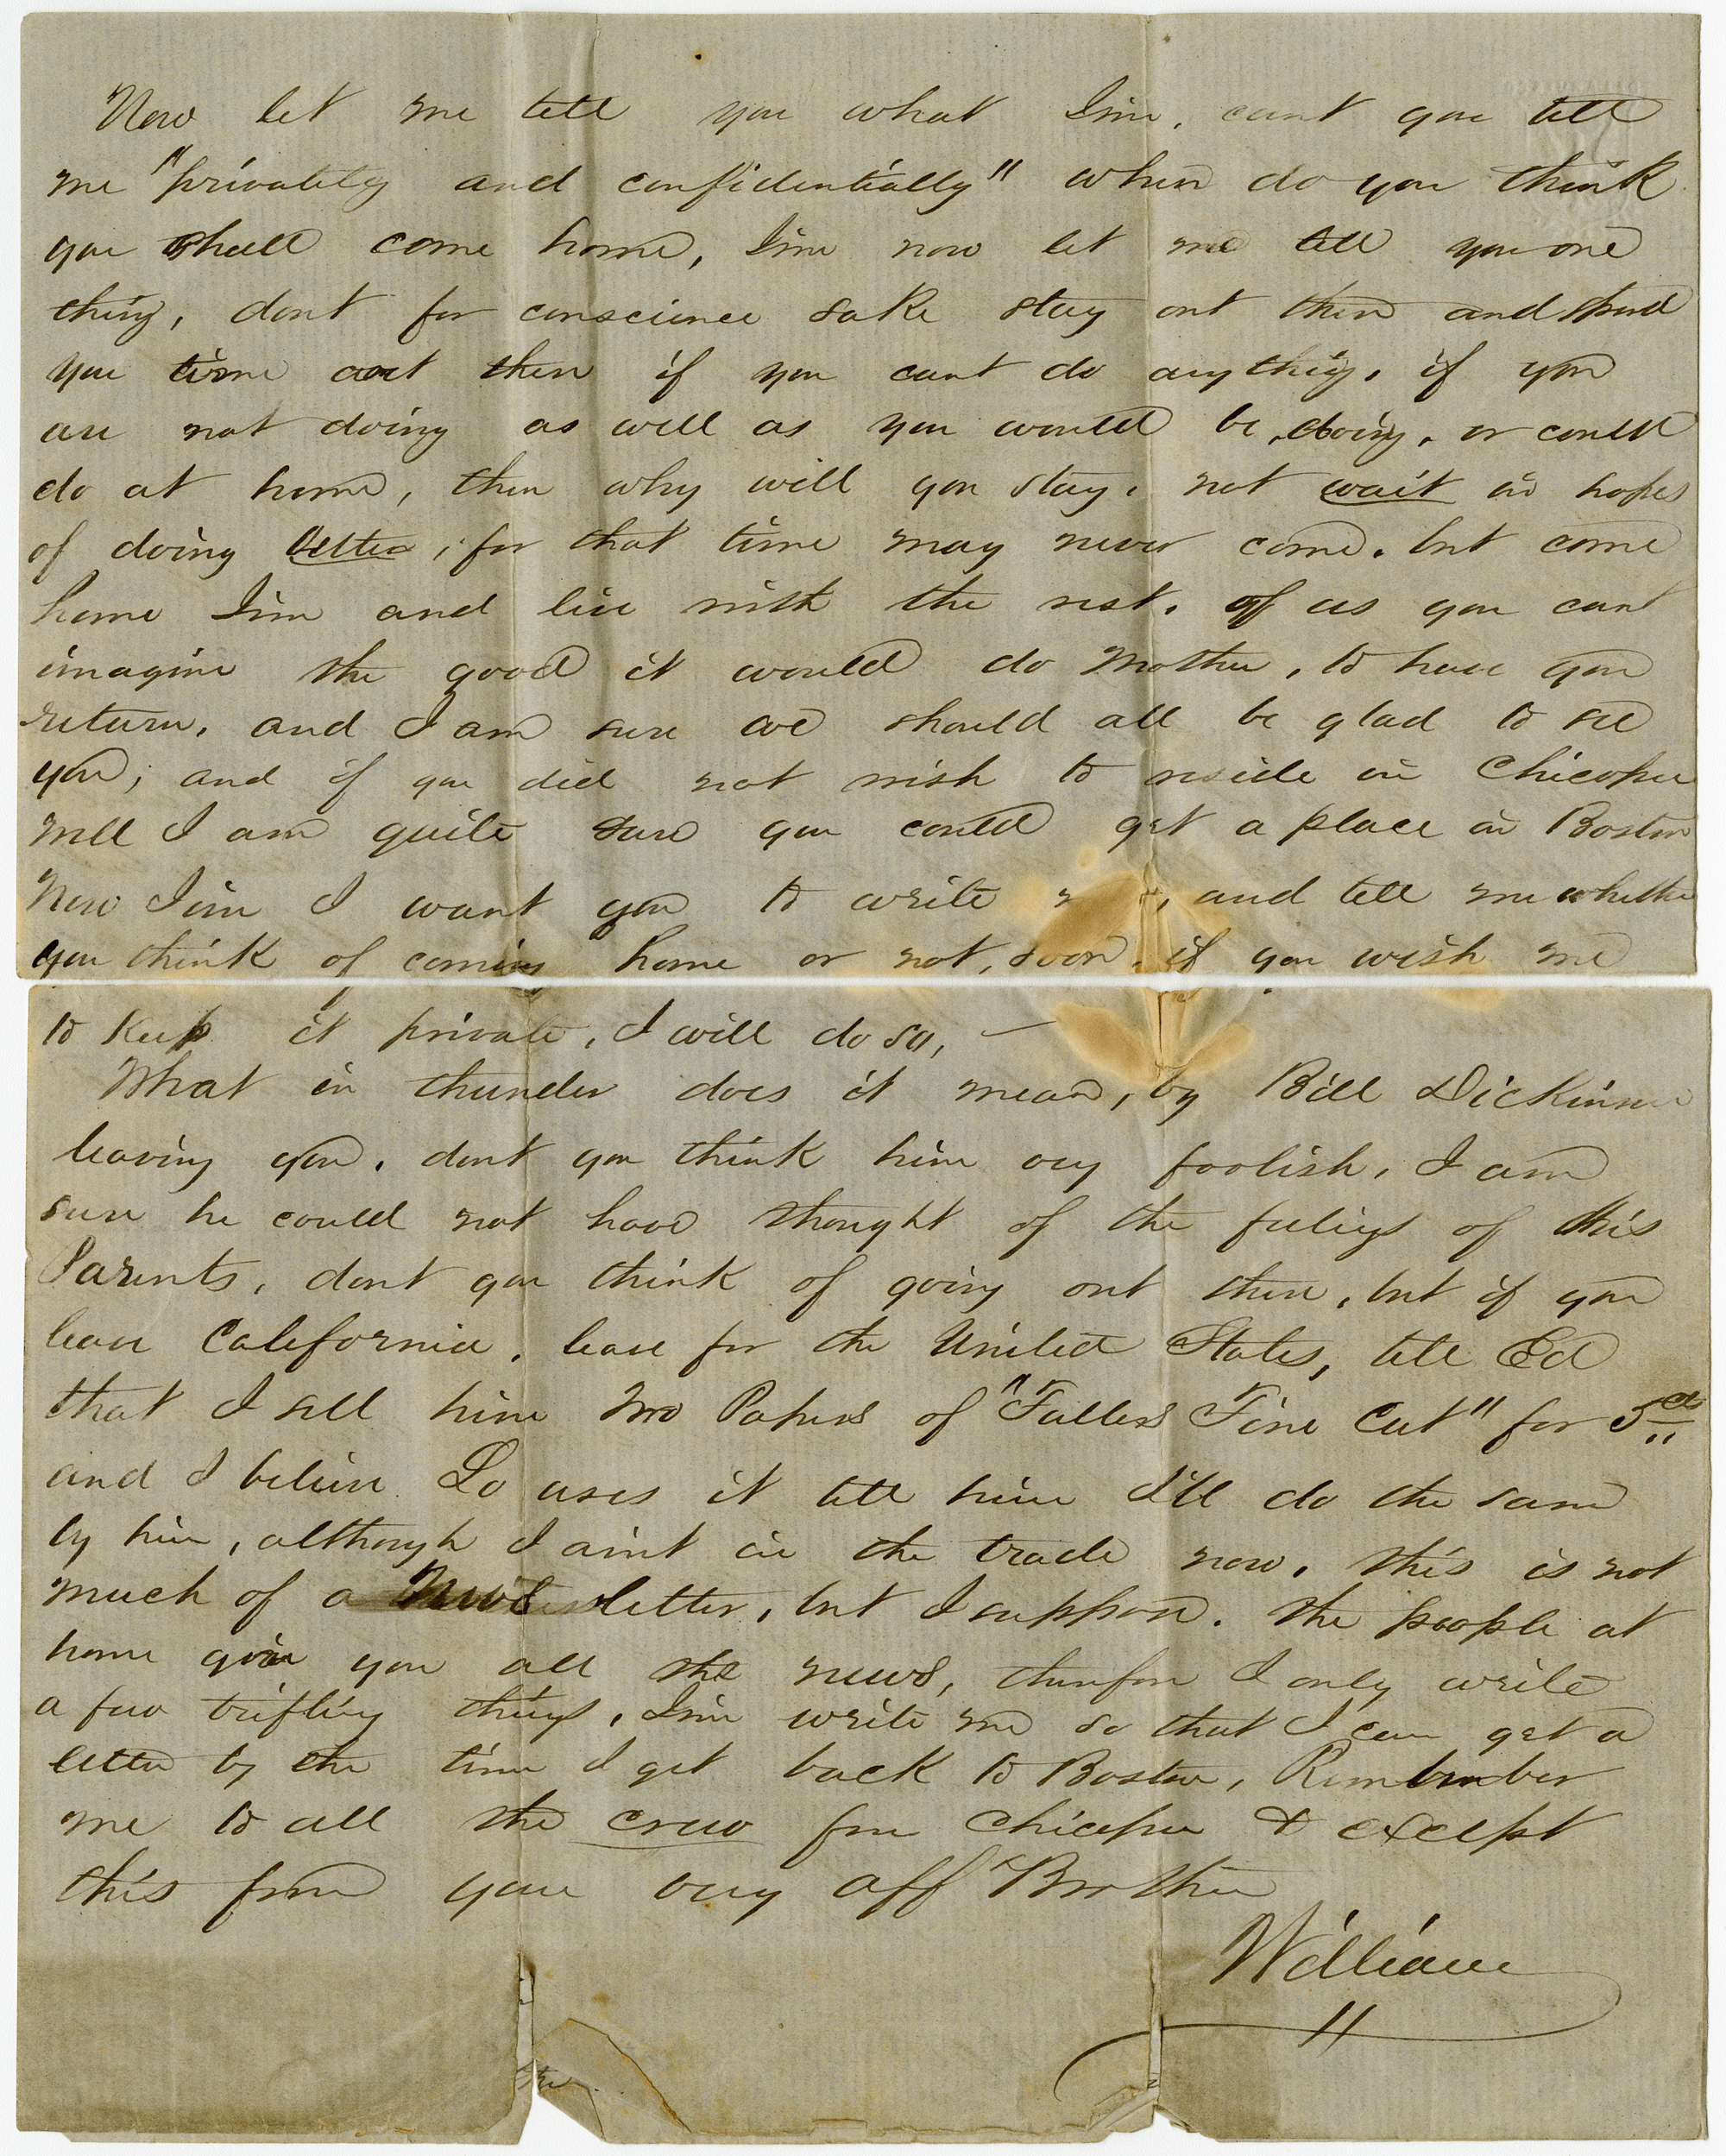 Now let me tell you what Jim, cant you tell
me "privately and confidentially" when do you think
you shall come home, Jim now let me tell you one
thing, dont for conscience sake stay out there and spend
you time out there if you cant do anything, if you
are not doing as well as you would be doing, or could
do at home, then why will you stay, not wait in hopes
of doing better, for that time may never come. but come
home Jim and live with the rest. of us you cant
imagine the good it would do Mother, to have you
return, and I am sure we should all be glad to see
you; and if you did not wish to reside in Chicopee
well I am quite sure you could get a place in Boston
Now Jim I want you to write , and tell me whether
you think of coming home or not, soon. if you wish me
to Keep it private, I will do so, —
What in thunder does it mean, by Bill Dickinson
leaving you. dont you think him very foolish, I am
sure he could not have thought of the feelings of his
Parents, dont you think of going out there, but if you
leave California, leave for the United States, tell Ed
that I sell him two Papers of "Fullers Fine Cut" for 5cts
and I believe Lo uses it tell him I'll do the same
by him, although I aint in the trade now, this is not
much of a News letter, but I suppose. the people at
home give you all the news, therefore I only write
a few trifling things, Jim write me so that I can get a
letter by the time I get back to Boston, Remember
me to all the crew from Chicopee & except
this from your very aff Brother
William